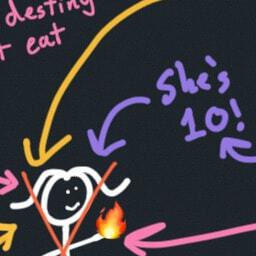 desting
t eat
She's
10!